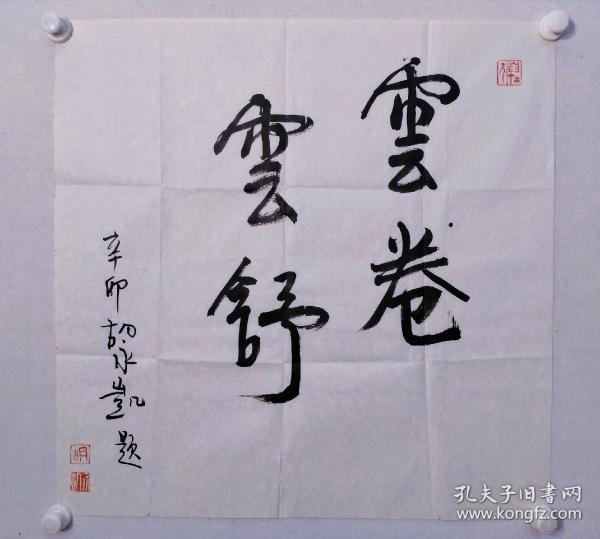 雲卷
雲舒
辛卯胡永凱題
孔夫子旧书网
www.kongfz.com